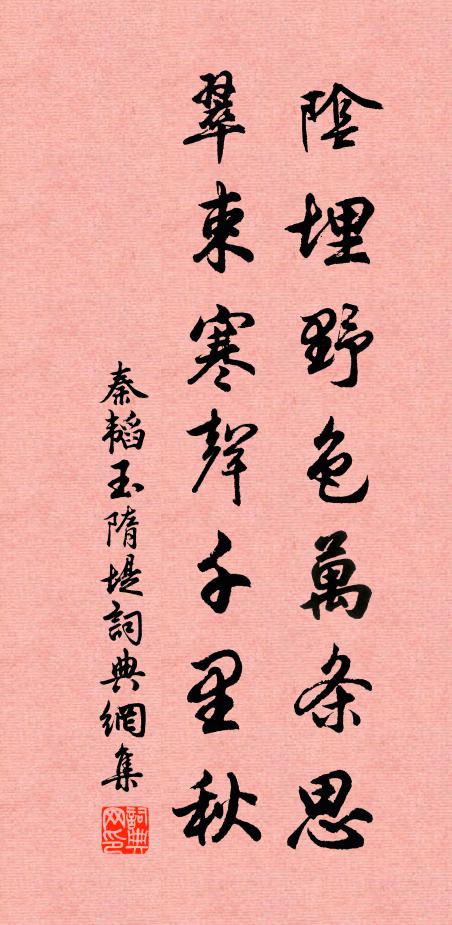 陰埋野色萬条思
翠束寒聲千里秋
秦韬玉隋堤詞典網集
詞典网印